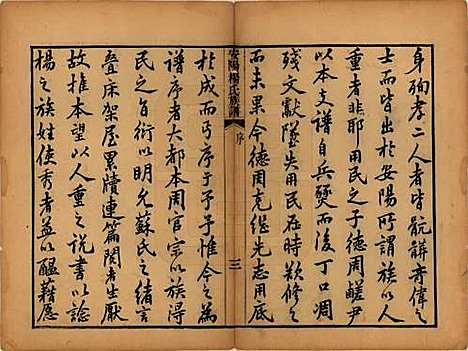 身殉孝二人者皆骯髒奇偉之
士而皆出於安陽所謂族以人
重者非耶用民之子德周鹺尹
以本支譜自兵燹而後丁口凋
殘文獻墜失用民在時欲修之
而未果今德周克繼先志用底
安陽楊氏族譜
序
三
於成而丐序于予予惟今之為
譜序者大都本周官宗以族得
民之旨衍以明允蘇氏之緒言
疊床架屋累牘連篇閱者生厭
故推本望以人重之說書以諗
楊之族姓使秀者益以醞藉愿